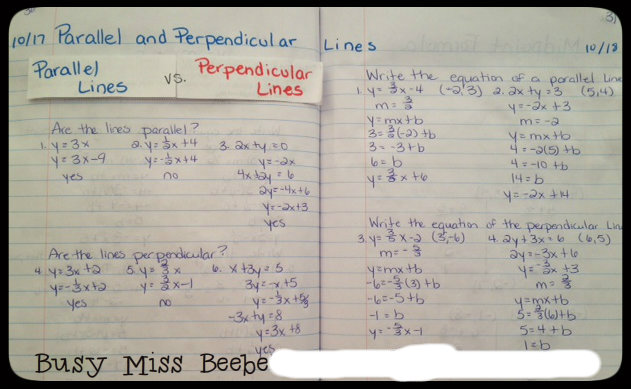 10/17 Parallel and Perpendicular Lines 10/18
Parallel Lines vs. Perpendicular Lines
Are the lines parallel?
1. y=3x
y=3x-9
yes
2. y=x+4
y=-x+4
no
3. 2x+y=0
y=-2x
4x+2y=6
2y=-4x+6
y=-2x+3
yes
Are the lines perpendicular?
4. y=3x+2
y=-1/3x+2
yes
5. y=x
y=x-1
no
6. x+3y=5
3y=-x+5
y=-1/3x+5/3
-3x+y=8
y=3x+8
yes
Write the equation of a parallel line
1. y=3/2x-4 (-2,3)
m=3/2
y=mx+b
3=3/2(-2)+b
3=-3+b
6=b
y=3/2x+6
2. 2x+y=3 (5,4)
y=-2x+3
m=-2
y=mx+b
4=-2(5)+b
4=-10+b
14=b
y=-2x+14
Write the equation of the perpendicular Line
3. y=3/5x-2 (3,-6)
m=-5/3
y=mx+b
-6=-5/3(3)+b
-6=-5+b
-1=b
y=-5/3x-1
4. 2y+3x=6 (6,5)
2y=-3x+6
y=-3/2x+3
m=2/3
y=mx+b
5=2/3(6)+b
5=4+b
1=b
Busy Miss Beebe